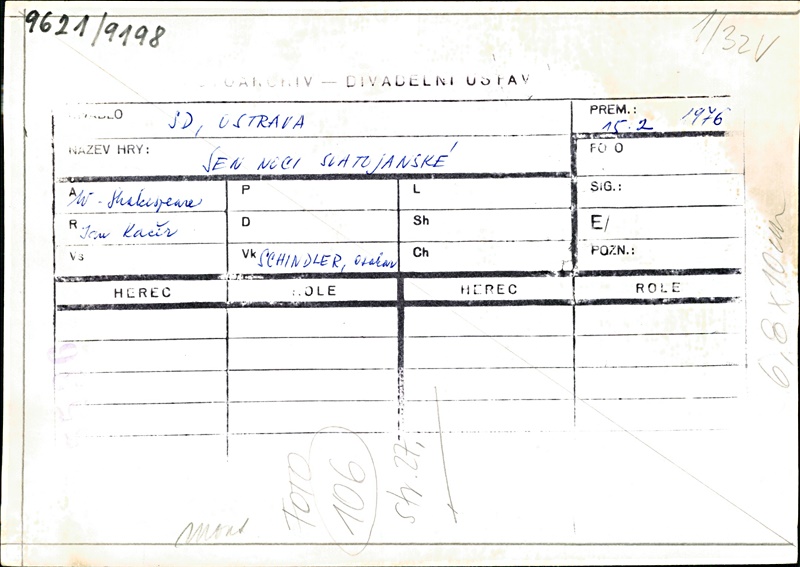 9621/9198
1/32V
DIVADELNÍ ÚSTAV
SD, OSTRAVA
PREM.: 15.2 1976
NÁZEV HRY: SEN NOCI SVATOJANSKÉ
FOTO
A W. Shakespeare P L SIG.:
R Jan Kačer D Sh E/
Vs Vk SCHINDLER, Otakar Ch POZN.:
HEREC ROLE HEREC ROLE
6,8 x 10cm
FOTO
106
str. 27,